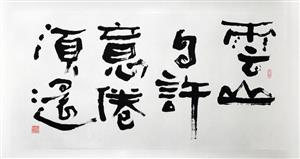 雲山
自許
意倦
須還